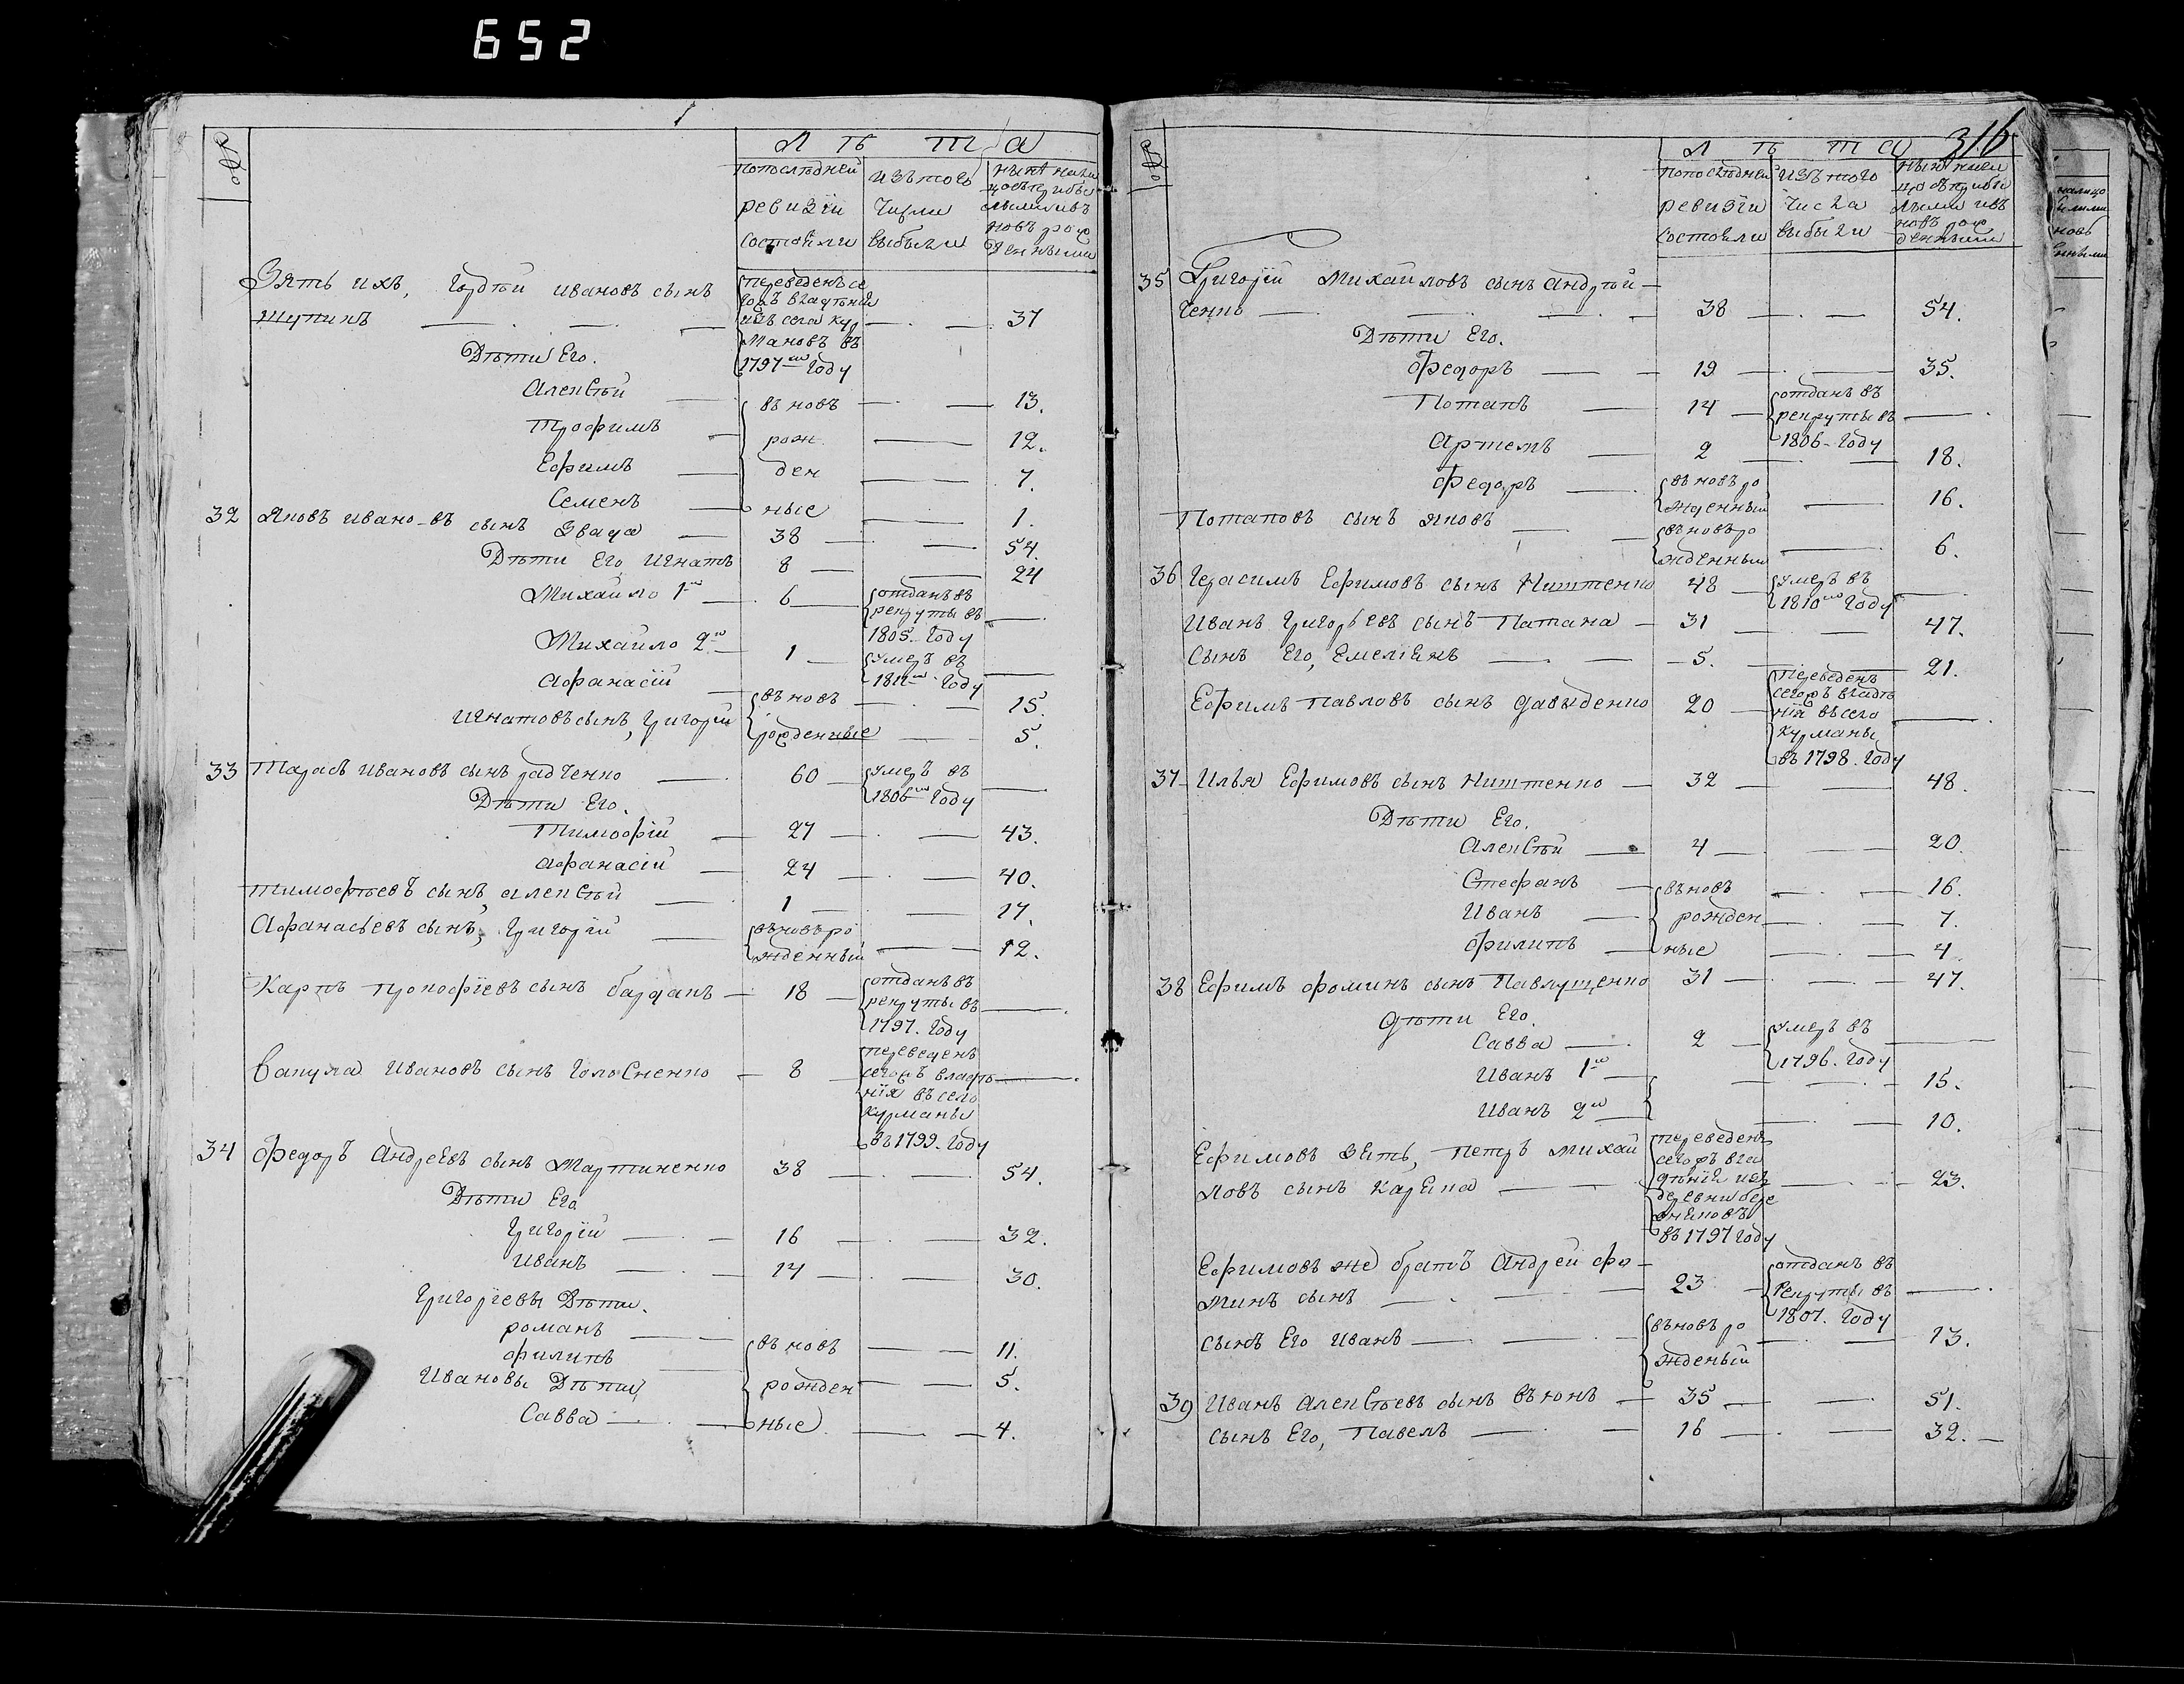 652
№
Л Ѣ Т А
по последней ревизiи состояли
изъ того числа выбыли
ныне на лицо съ прибылыми и въ новъ рожденными
Зять ихъ, Гордѣй ивановъ сынъ
Щупикъ — 37
переведенъ сегожъ владѣнiй изъ села Курмановъ въ 1797 мъ году
Дѣти Его.
Алексѣй — въ новъ — 13.
Трофимъ — рож — 12.
Ефимъ — ден — 7.
Семенъ — ные — 1.
32 Яковъ ивановъ сынъ Звада — 38 — 54.
Дѣти Его Игнатъ 8 — 24
Михайло 1й — 6 отданъ въ рекруты въ 1805. году —
Михайло 2й — 1 — умеръ въ 1811м году —
Афанасiй — въ новъ — 15.
Игнатовъ сынъ, Григорiй рожденные — 5.
33 Тарасъ ивановъ сынъ радченко — 60 — умеръ въ 1806м году —
Дѣти Его.
Тимофiй — 27 — 43.
Афанасiй — 24 — 40.
Тимофѣевъ сынъ, алексѣй — 1 — 17.
Афанасьевъ сынъ, Григорiй — въ новъ рожденный — 12.
Карпъ прокофiевъ сынъ барданъ — 18 — отданъ въ рекруты въ 1797. году —
Вакула ивановъ сынъ Голосненко — 8 — переведенъ сегожъ владѣнiя въ село Курманы въ 1799. году —
34 Федоръ Андреевъ сынъ Мартиненко 38 — 54.
Дѣти Его
Григорiй — 16 — 32.
Иванъ — 14 — 30.
Григорiевы Дѣти.
романъ — въ новъ — 11.
филипъ — рожден — 5.
Ивановы Дѣти,
Савва — ные — 4.
316
№
Л Ѣ Т А
по последней ревизiи состояли
изъ того числа выбыли
ныне на лицо съ прибылыми и въ новъ рожденными
35 Григорiй Михайловъ сынъ андрѣй-
ченко — 38 — 54.
Дѣти Его.
Федоръ — 19 — 35.
Потапъ — 14 — отданъ въ рекруты въ 1806. году —
Артемъ — 2 — 18.
Федоръ — въ новъ рожденный — 16.
Потаповъ сынъ яковъ — въ новъ рожденный — 6.
36 Герасимъ Ефимовъ сынъ Ништенко 48 — умеръ въ 1810м году —
Иванъ Григорьевъ сынъ Патана — 31 — 47.
Сынъ Его, Емелiянъ — 5. — 21.
Ефимъ Павловъ сынъ давыденко 20 — переведенъ сегожъ владѣнiя въ село Курманы въ 1798. году —
37 Илья Ефимовъ сынъ Ништенко — 32 — 48.
Дѣти Его.
Алексѣй — 4 — 20.
Стефанъ — въ новъ — 16.
Иванъ — рожден — 7.
Филипъ — ные — 4
38 Ефимъ фоминъ сынъ Павлущенко 31 — 47.
Дѣти Его.
Савва — 2 — умеръ въ 1796. году —
Иванъ 1й — 15.
Иванъ 2й — 10.
Ефимовъ зять, Петръ михай
ловъ сынъ Карѣка — переведенъ сегожъ владѣнiй изъ деревни бережновъ въ 1797 году — 23.
Ефимовъ же братъ Андрей фо-
минъ сынъ — 23 — отданъ въ рекруты въ 1807. году —
сынъ Его иванъ — въ новъ рожденый — 13.
39 Иванъ алексѣевъ сынъ вьюнъ — 35 — 51.
сынъ Его, Павелъ — 16 — 32. —